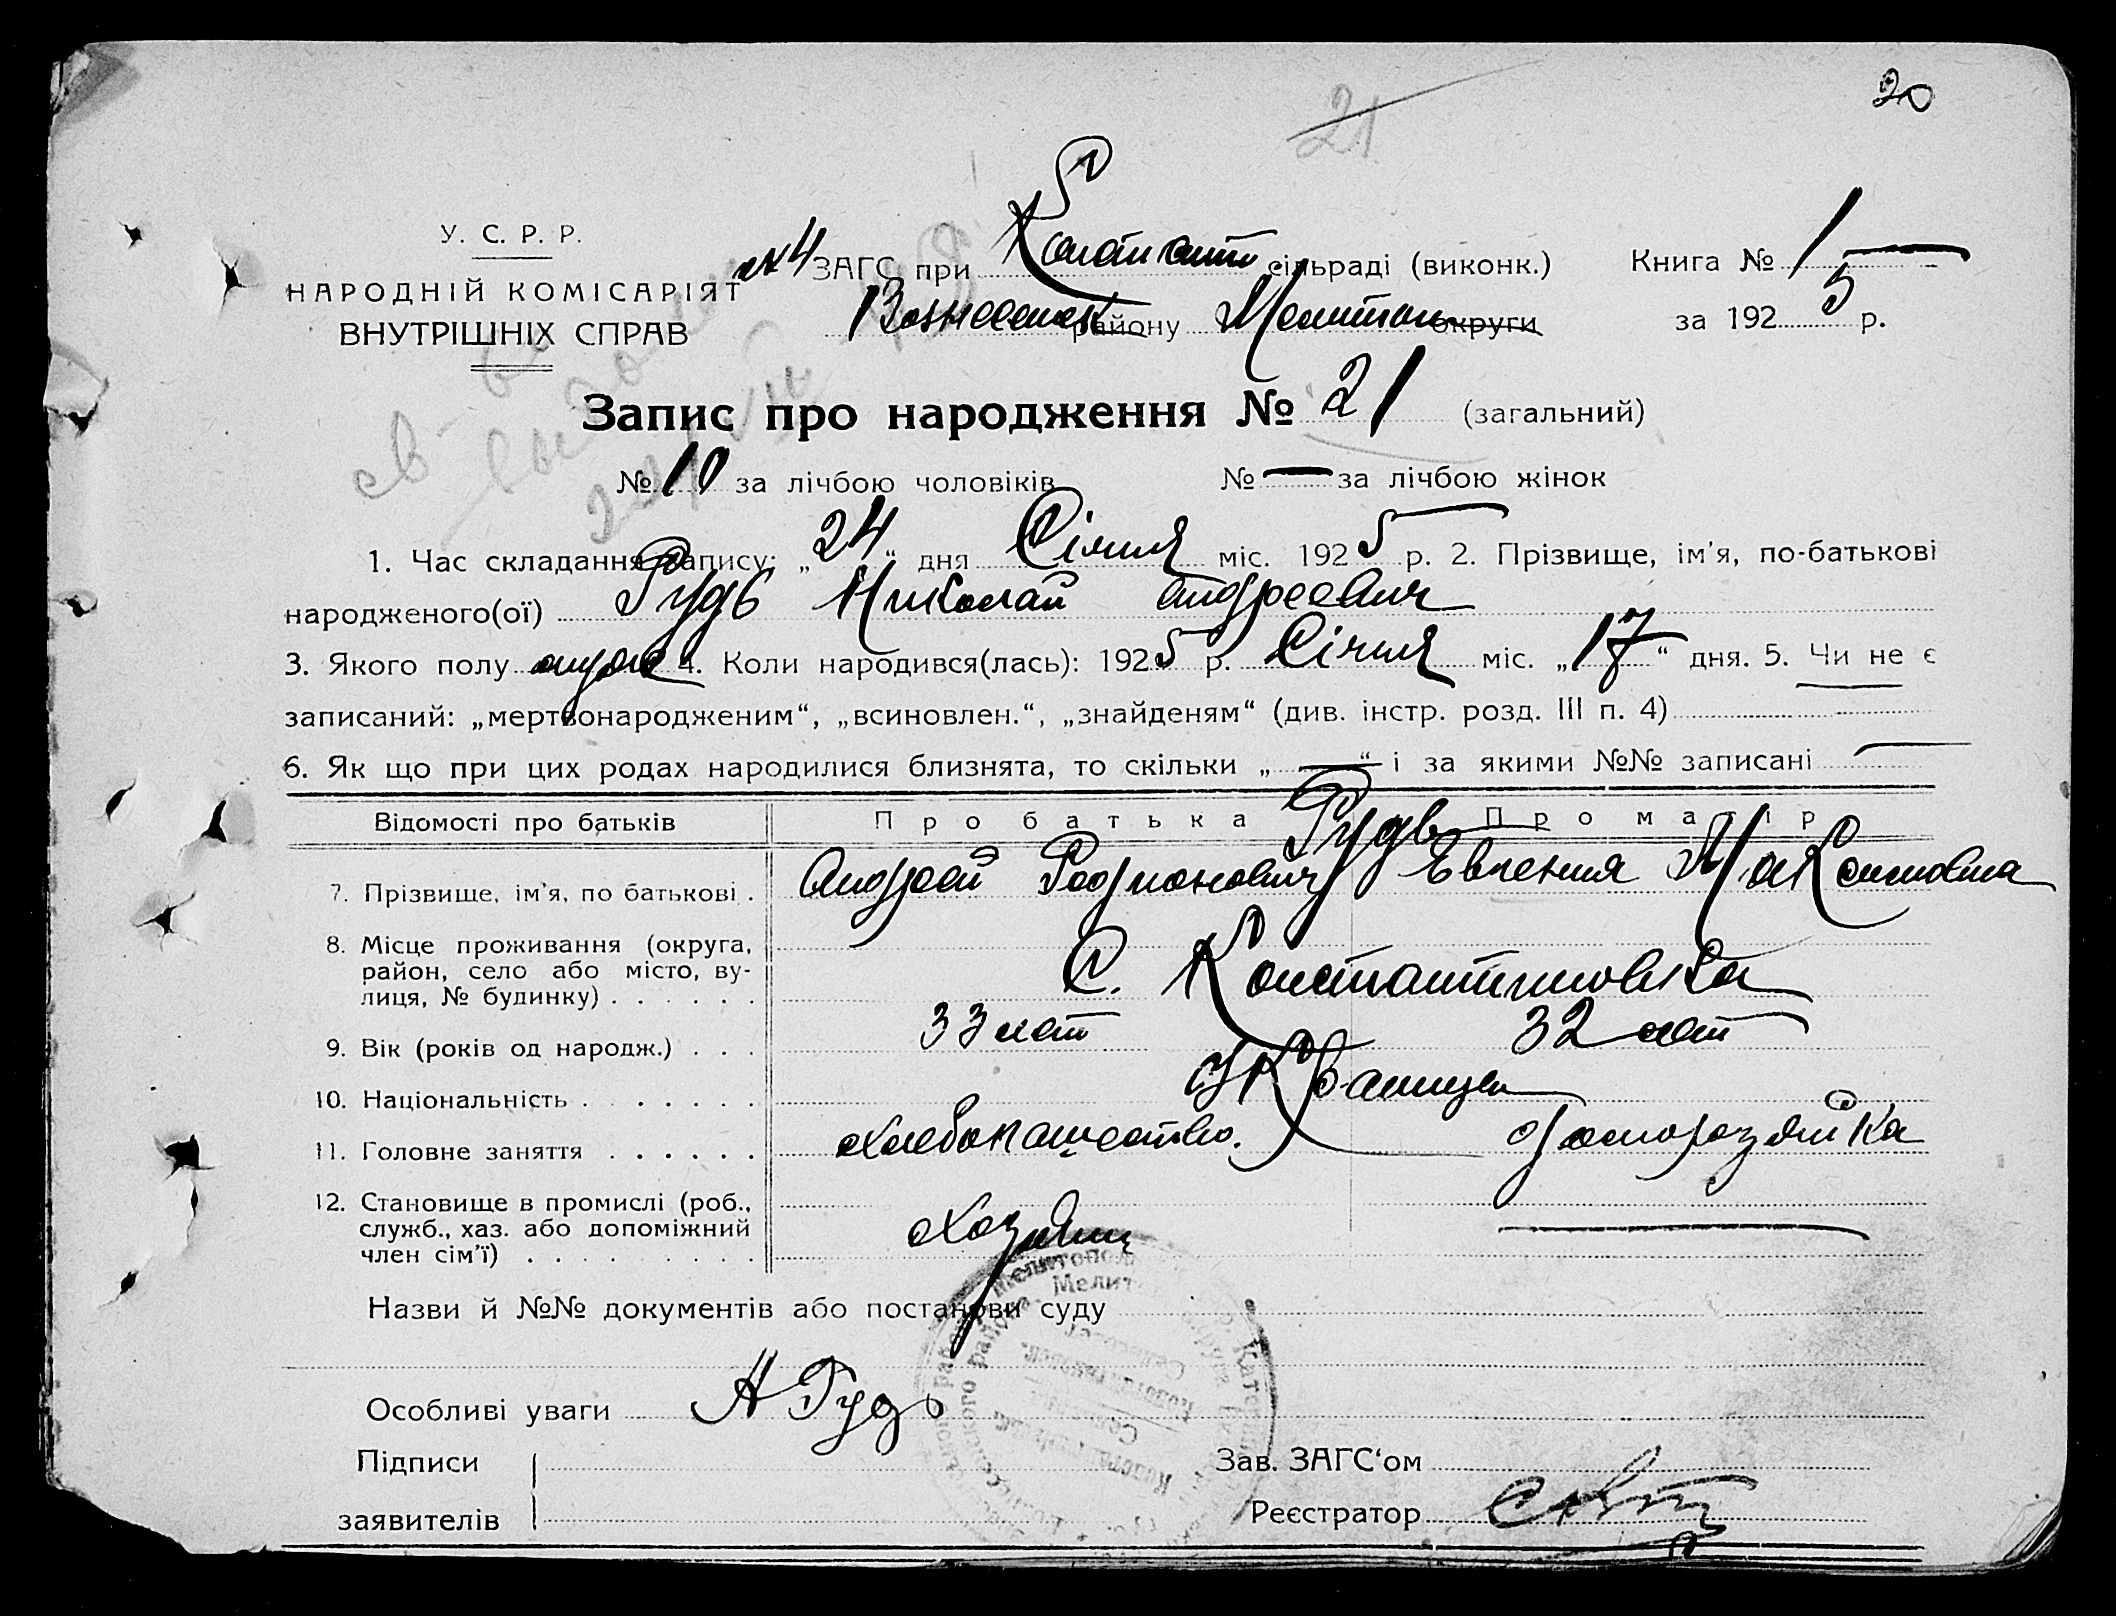 20
21
У. С. Р. Р.
НАРОДНІЙ КОМІСАРІЯТ
ВНУТРІШНІХ СПРАВ
№4 ЗАГС при Константин сільраді (виконк.) Книга № 1
Вознесенск району Мелитоп округи за 1925 р.
Запис про народження № 21 (загальний)
№ 10 за лічбою чоловіків № — за лічбою жінок
1. Час складання запису: „24“ дня Січня міс. 1925 р. 2. Прізвище, ім'я, по-батькові
народженого(ої) Рудь Николай Андреевич
3. Якого полу муж 4. Коли народився(лась): 1925 р. Січня міс. „17“ дня. 5. Чи не є
записаний: „мертвонародженим“, „всиновлен.“, „знайденям“ (див. інстр. розд. III п. 4)
6. Як що при цих родах народилися близнята, то скільки „—“ і за якими №№ записані —
Відомості про батьків Про батька Про матір
Рудь
7. Прізвище, ім'я, по батькові . Андрей Родионович Евгения Максимовна
8. Місце проживання (округа,
район, село або місто, ву-
лиця, № будинку) . . . . . . С. Константиновка
9. Вік (років од народж.) . . . 33 лет 32 лет
10. Національність . . . . . . . Украинцы
11. Головне заняття . . . . . . Хлебопашество. домохозяйка
12. Становище в промислі (роб.,
служб., хаз. або допоміжний
член сім'ї) . . . . . . . . . Хозяин —
Назви й №№ документів або постанови суду
Особливі уваги А Рудь
Підписи
заявителів
Зав. ЗАГС‘ом
Реєстратор